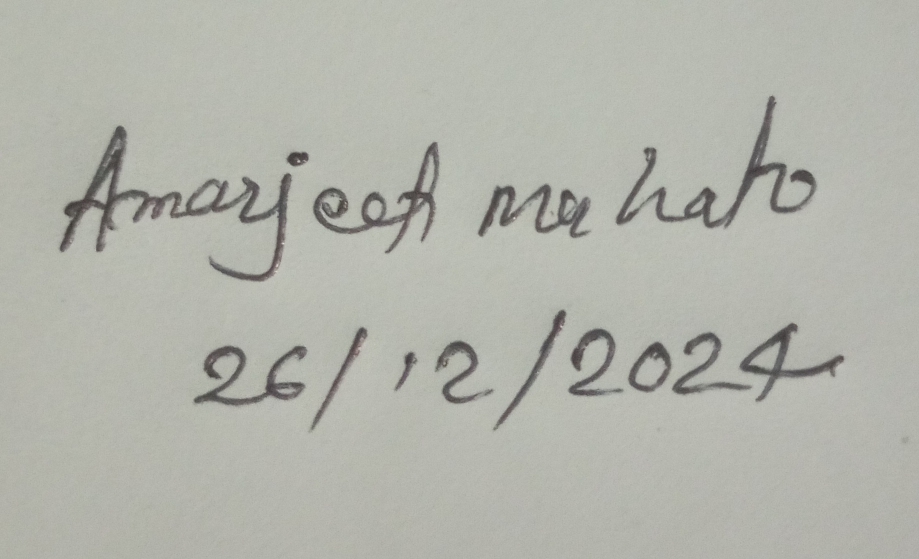 Amarjeet mahato
26/12/2024